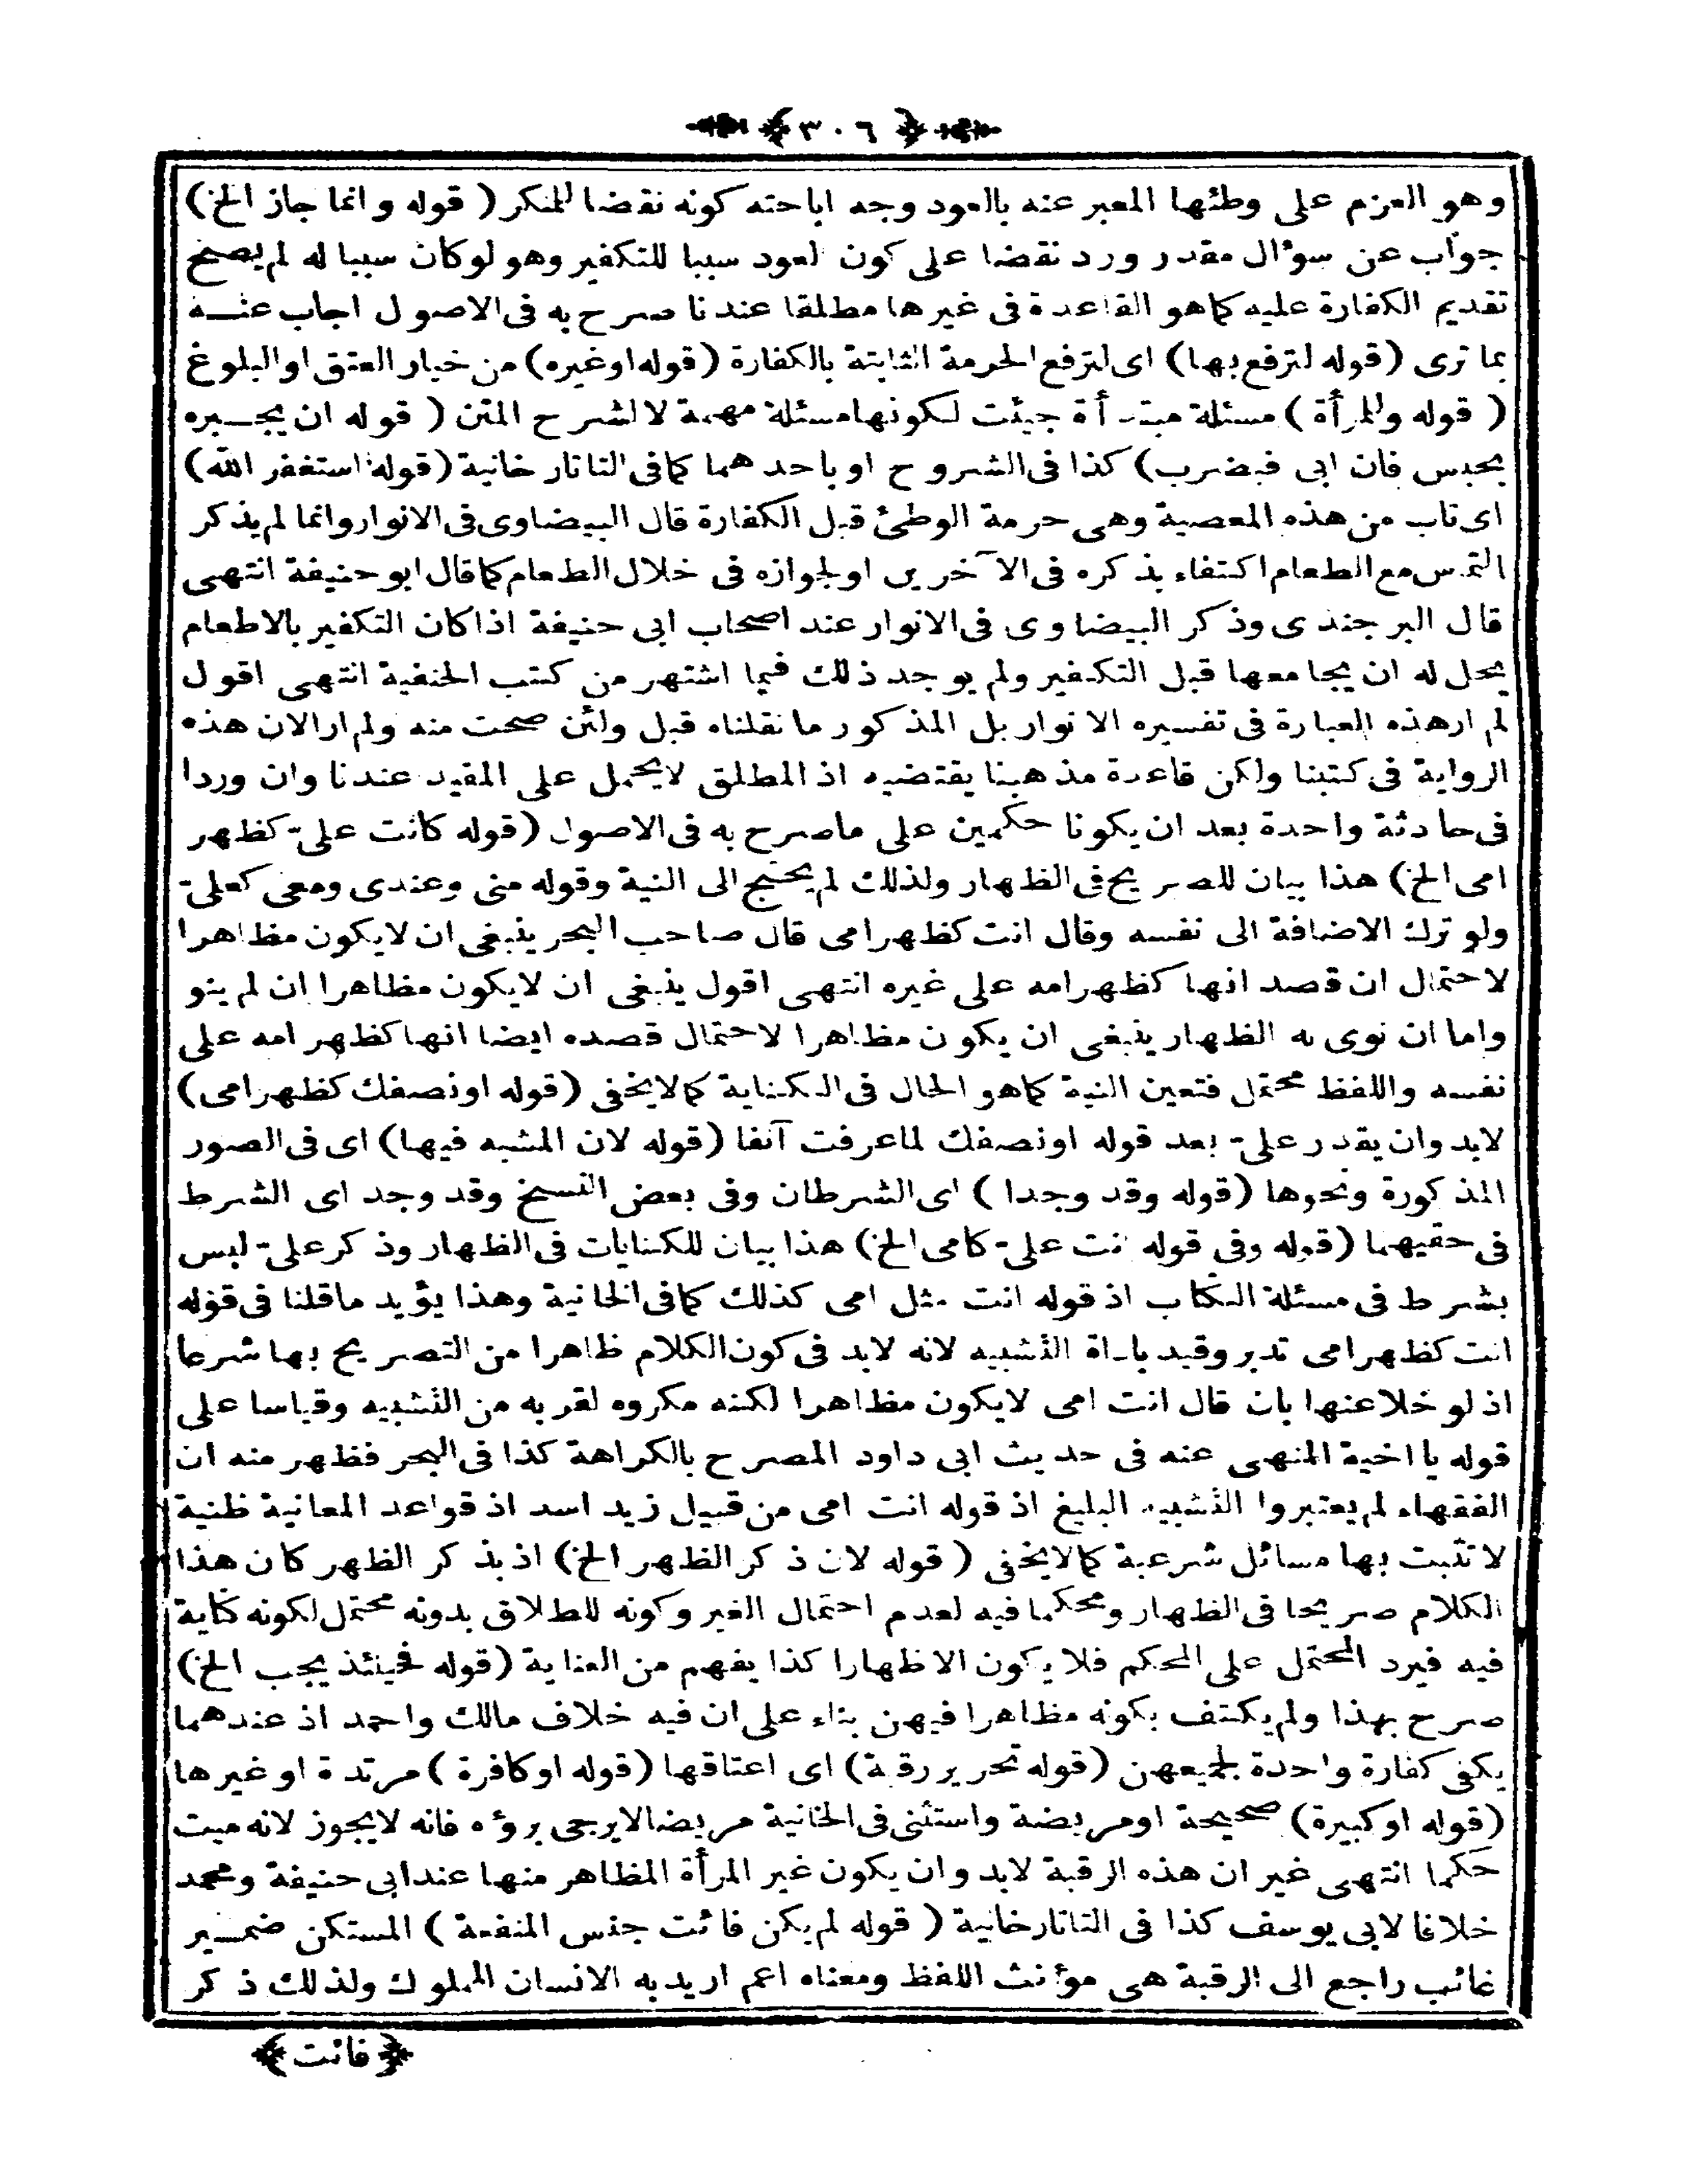 ٣٠٦
وهو العزم على وطئها المعبر عنه بالعود وجه اباحته كونه نقضا للمنكر ( قوله وانما جاز الخ )
جواب عن سؤال مقدر ورد نقضا على كون لعود سببا للتكفير وهو لوكان سببا له لم يصح
تقديم الكفارة عليه كماهو القاعدة فى غيرها مطلقا عندنا صرح به فى الاصول اجاب عنه
بما ترى (قوله لترفع بها) اى لترفع الحرمة الثابتة بالكفارة (قوله اوغيره) من خيار العتق او البلوغ
( قوله وللمرأة ) مسئلة مبتدأة جيئت لكونها مسئلة مهمة لالشرح المتن ( قوله ان يجبره
بحبس فان ابى فبضرب) كذا فى الشروح او باحدهما كمافى التاتارخانية (قوله استغفر الله)
اى تاب من هذه المعصية وهى حرمة الوطئ قبل الكفارة قال البيضاوى فى الانوار وانما لم يذكر
التماس مع الطعام اكتفاء بذكره فى الآخرين اولجوازه فى خلال الطعام كماقال ابوحنيفة انتهى
قال البرجندى وذكر البيضاوى فى الانوار عند اصحاب ابى حنيفة اذاكان التكفير بالاطعام
يحل له ان يجامعها قبل التكفير ولم يوجد ذلك فيما اشتهر من كتب الحنفية انتهى اقول
لم ارهذه العبارة فى تفسيره الانوار بل المذكور مانقلناه قبل ولئن صحت منه ولم ارالان هذه
الرواية فى كتبنا ولكن قاعدة مذهبنا يقتضيه اذ المطلق لايحمل على المقيد عندنا وان وردا
فى حادثة واحدة بعد ان يكونا حكمين على ماصرح به فى الاصول (قوله كانت على كظهر
امى الخ) هذا بيان للصريح فى الظهار ولذلك لم يحتج الى النية وقوله منى وعندى ومعى كعلى
ولو ترك الاضافة الى نفسه وقال انت كظهرامى قال صاحب البحر ينبغى ان لايكون مظاهرا
لاحتمال ان قصد انها كظهرامه على غيره انتهى اقول ينبغى ان لايكون مظاهرا ان لم ينو
واما ان نوى به الظهار ينبغى ان يكون مظاهرا لاحتمال قصده ايضا انها كظهر امه على
نفسه واللفظ محتمل فتعين النية كماهو الحال فى الكناية كمالايخفى (قوله اونصفك كظهرامى)
لابد وان يقدر على بعد قوله اونصفك لماعرفت آنفا (قوله لان المشبه فيها) اى فى الصور
المذكورة ونحوها (قوله وقد وجدا ) اى الشرطان وفى بعض النسخ وقد وجد اى الشرط
فى حقيهما (قوله وفى قوله نت على كامى الخ) هذا بيان للكنايات فى الظهار وذكر على ليس
بشرط فى مسئلة الكتاب اذ قوله انت مثل امى كذلك كمافى الخانية وهذا يؤيد ماقلنا فى قوله
انت كظهرامى تدبر وقيد باداة التشبيه لانه لابد فى كون الكلام ظاهرا من التصريح بها شرعا
اذ لو خلاعنها بان قال انت امى لايكون مظاهرا لكنه مكروه لقربه من التشبيه وقياسا على
قوله يا اخية المنهى عنه فى حديث ابى داود المصرح بالكراهة كذا فى البحر فظهر منه ان
الفقهاء لم يعتبروا التشبيه البليغ اذ قوله انت امى من قبيل زيد اسد اذ قواعد المعانية ظنية
لا تثبت بها مسائل شرعية كمالايخفى ( قوله لان ذكر الظهر الخ) اذ بذكر الظهر كان هذا
الكلام صريحا فى الظهار ومحكما فيه لعدم احتمال الغير وكونه للطلاق بدونه محتمل لكونه كناية
فيه فيرد المحتمل على المحكم فلا يكون الاظهارا كذا يفهم من العناية (قوله فحينئذ يجب الخ)
صرح بهذا ولم يكتف بكونه مظاهرا فيهن بناء على ان فيه خلاف مالك واحمد اذ عندهما
يكفى كفارة واحدة لجميعهن (قوله تحرير رقبة) اى اعتاقها (قوله اوكافرة ) مرتدة او غيرها
(قوله اوكبيرة) صحيحة اومريضة واستثنى فى الخانية مريضا لايرجى برؤه فانه لايجوز لانه ميت
حكما انتهى غير ان هذه الرقبة لابد وان يكون غير المرأة المظاهر منها عند ابى حنيفة ومحمد
خلافا لابى يوسف كذا فى التاتارخانية ( قوله لم يكن فائت جنس المنفعة ) المستكن ضمير
غائب راجع الى الرقبة هى مؤنث اللفظ ومعناه اعم اريد به الانسان المملوك ولذلك ذكر
﴿ فائت ﴾